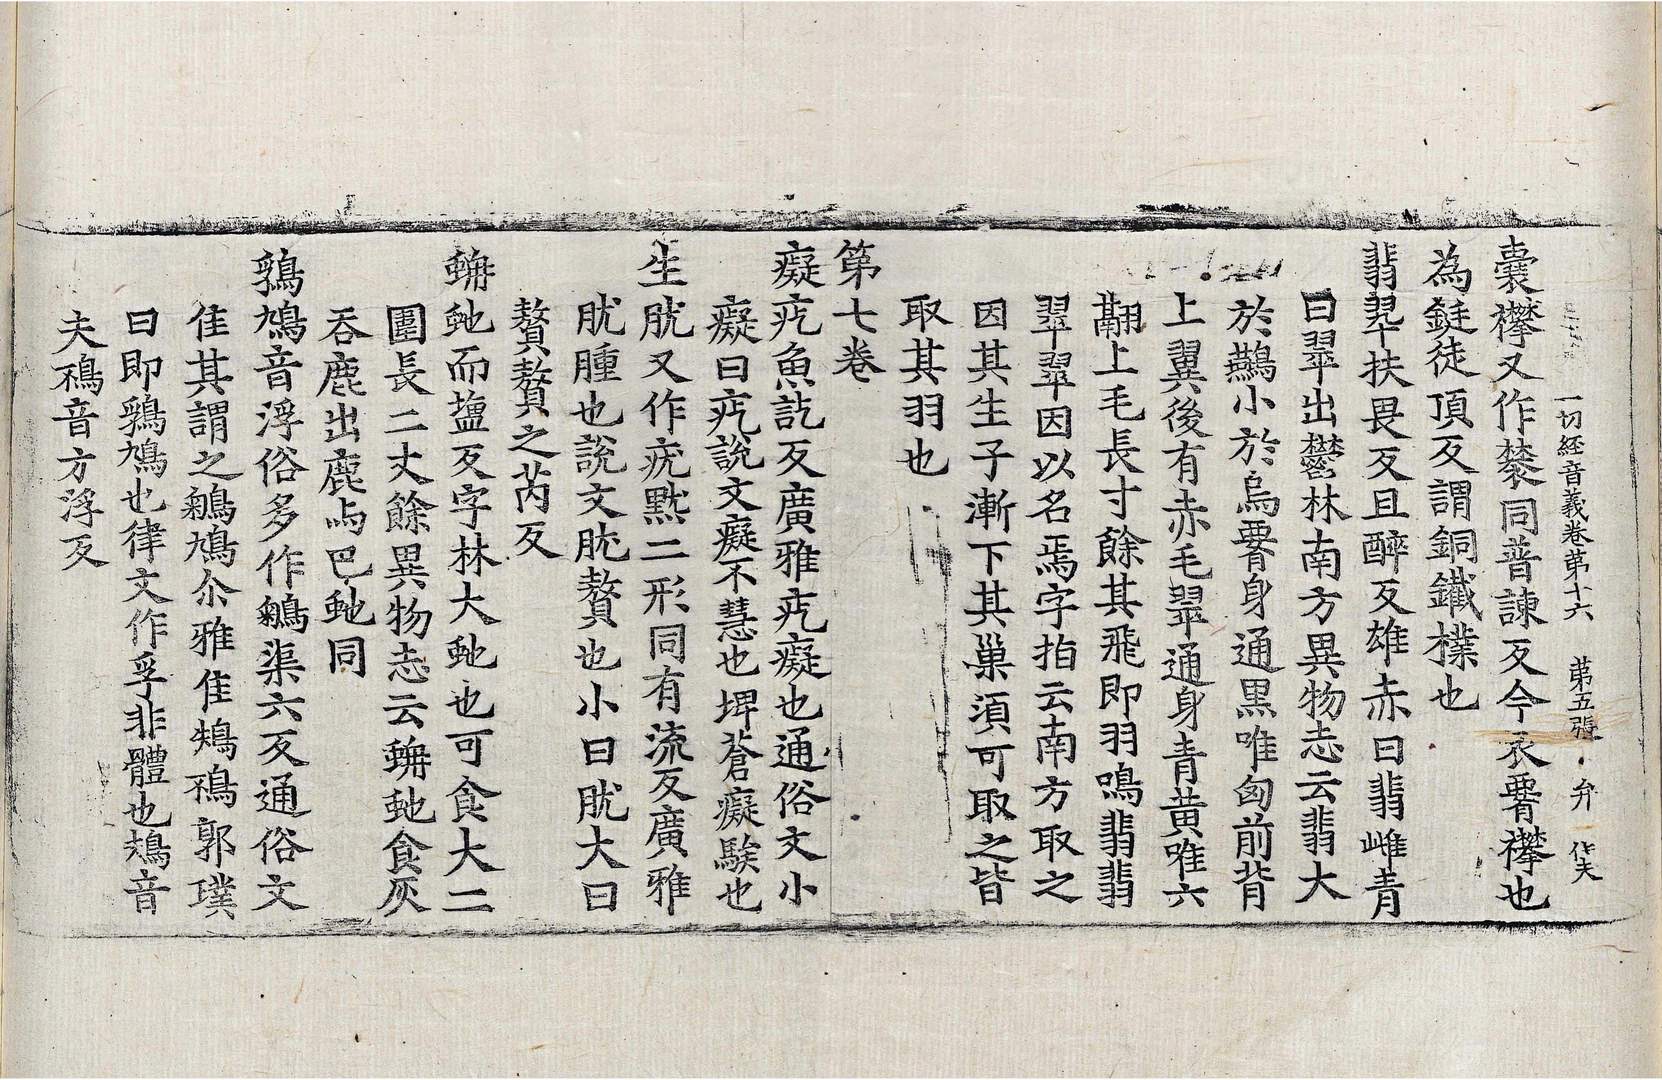 一切經音義卷苐十六　苐五張　弁　作夫
囊襻又作䙪同普諫反今衣要襻也
為鋌徒頂反謂銅鐵樸也
翡翠扶畏反且醉反雄赤曰翡雌青
曰翠出欝林南方異物志云翡大
於鷰小於烏要身通黒唯匈前背
上翼後有赤毛翠通身青黄唯六
翮上毛長寸餘其飛即羽鳴翡翡
翠翠因以名焉字拍云南方取之
因其生子漸下其巢湏可取之皆
取其羽也
第七卷
癡疙魚訖反廣雅疙癡也通俗文小
癡曰疙說文癡不慧也埤蒼癡騃也
生肬又作疣黓二形同有流反廣雅
肬腫也說文肬贅也小曰肬大曰
贅贅之芮反
蚺虵而塩反字林大虵也可食大二
圍長二丈餘異物志云蚺虵食灰
吞鹿出鹿与巴虵同
鶉鳩音浮俗多作鵴渠六反通俗文
隹其謂之鵴鳩尒雅隹鳺鴀郭璞
曰即鶉鳩也律文作孚非體也鳺音
夫鴀音方浮反